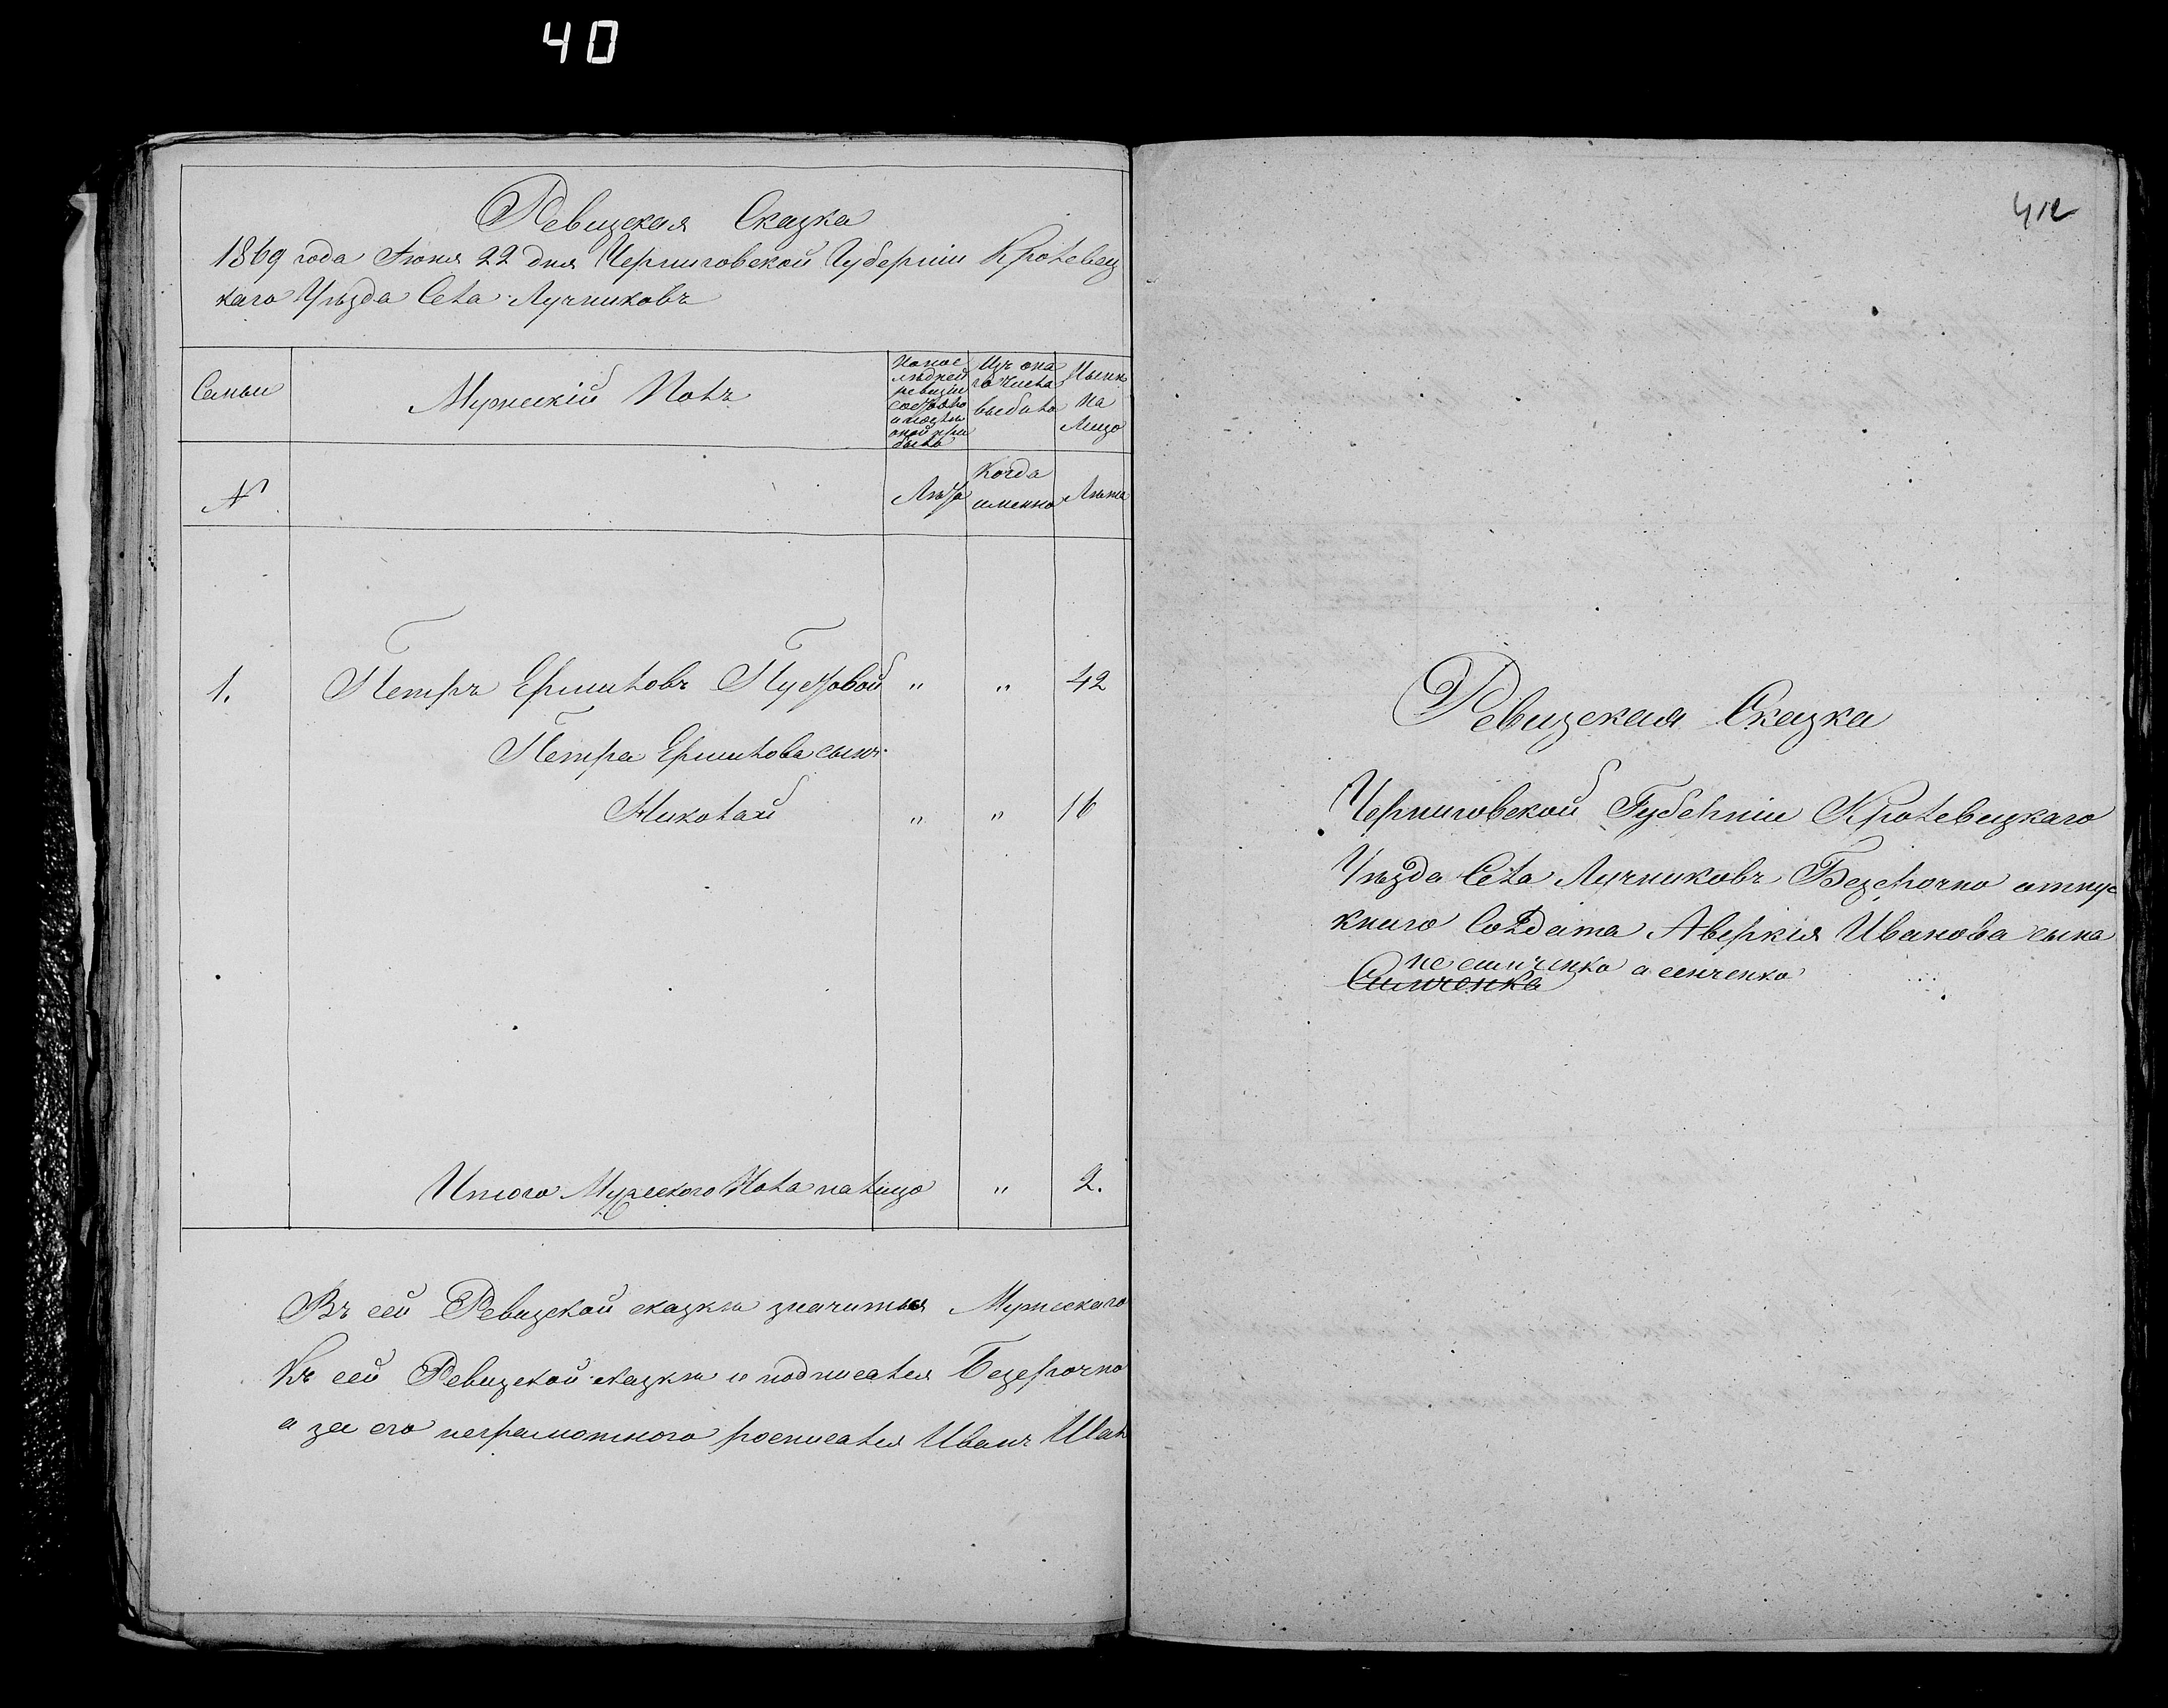 40
Ревизская Сказка
1869 года Июня 22 дня Черниговской Губернiи Кролевец
каго Уѣзда Села Лучниковъ
Семьи
Мужескiй Полъ
По пос
лѣдней
ревизiи
состояло
и послѣ
оной при
было
Изъ она
го числа
выбыло
Нынѣ
на
Лицо
№
Лѣта
Когда
именно
Лѣта
1. Петръ Ермиловъ Пустовой " " 42
Петра Ермилова сынъ
Николай " " 16
Итого Мужескаго Пола на лицо " 2.
Въ сей Ревизской сказкѣ значится Мужескаго
Къ сей Ревизской сказкѣ и подписался Безсрочно
а за его неграмотного росписался Иванъ
412
Ревизская Сказка
Черниговской Губернiи Кролевецкаго
Уѣзда Села Лучниковъ Безсрочно отпус
кнаго Солдата Аверкiя Иванова сына
не симченко а сенченко
Симченка